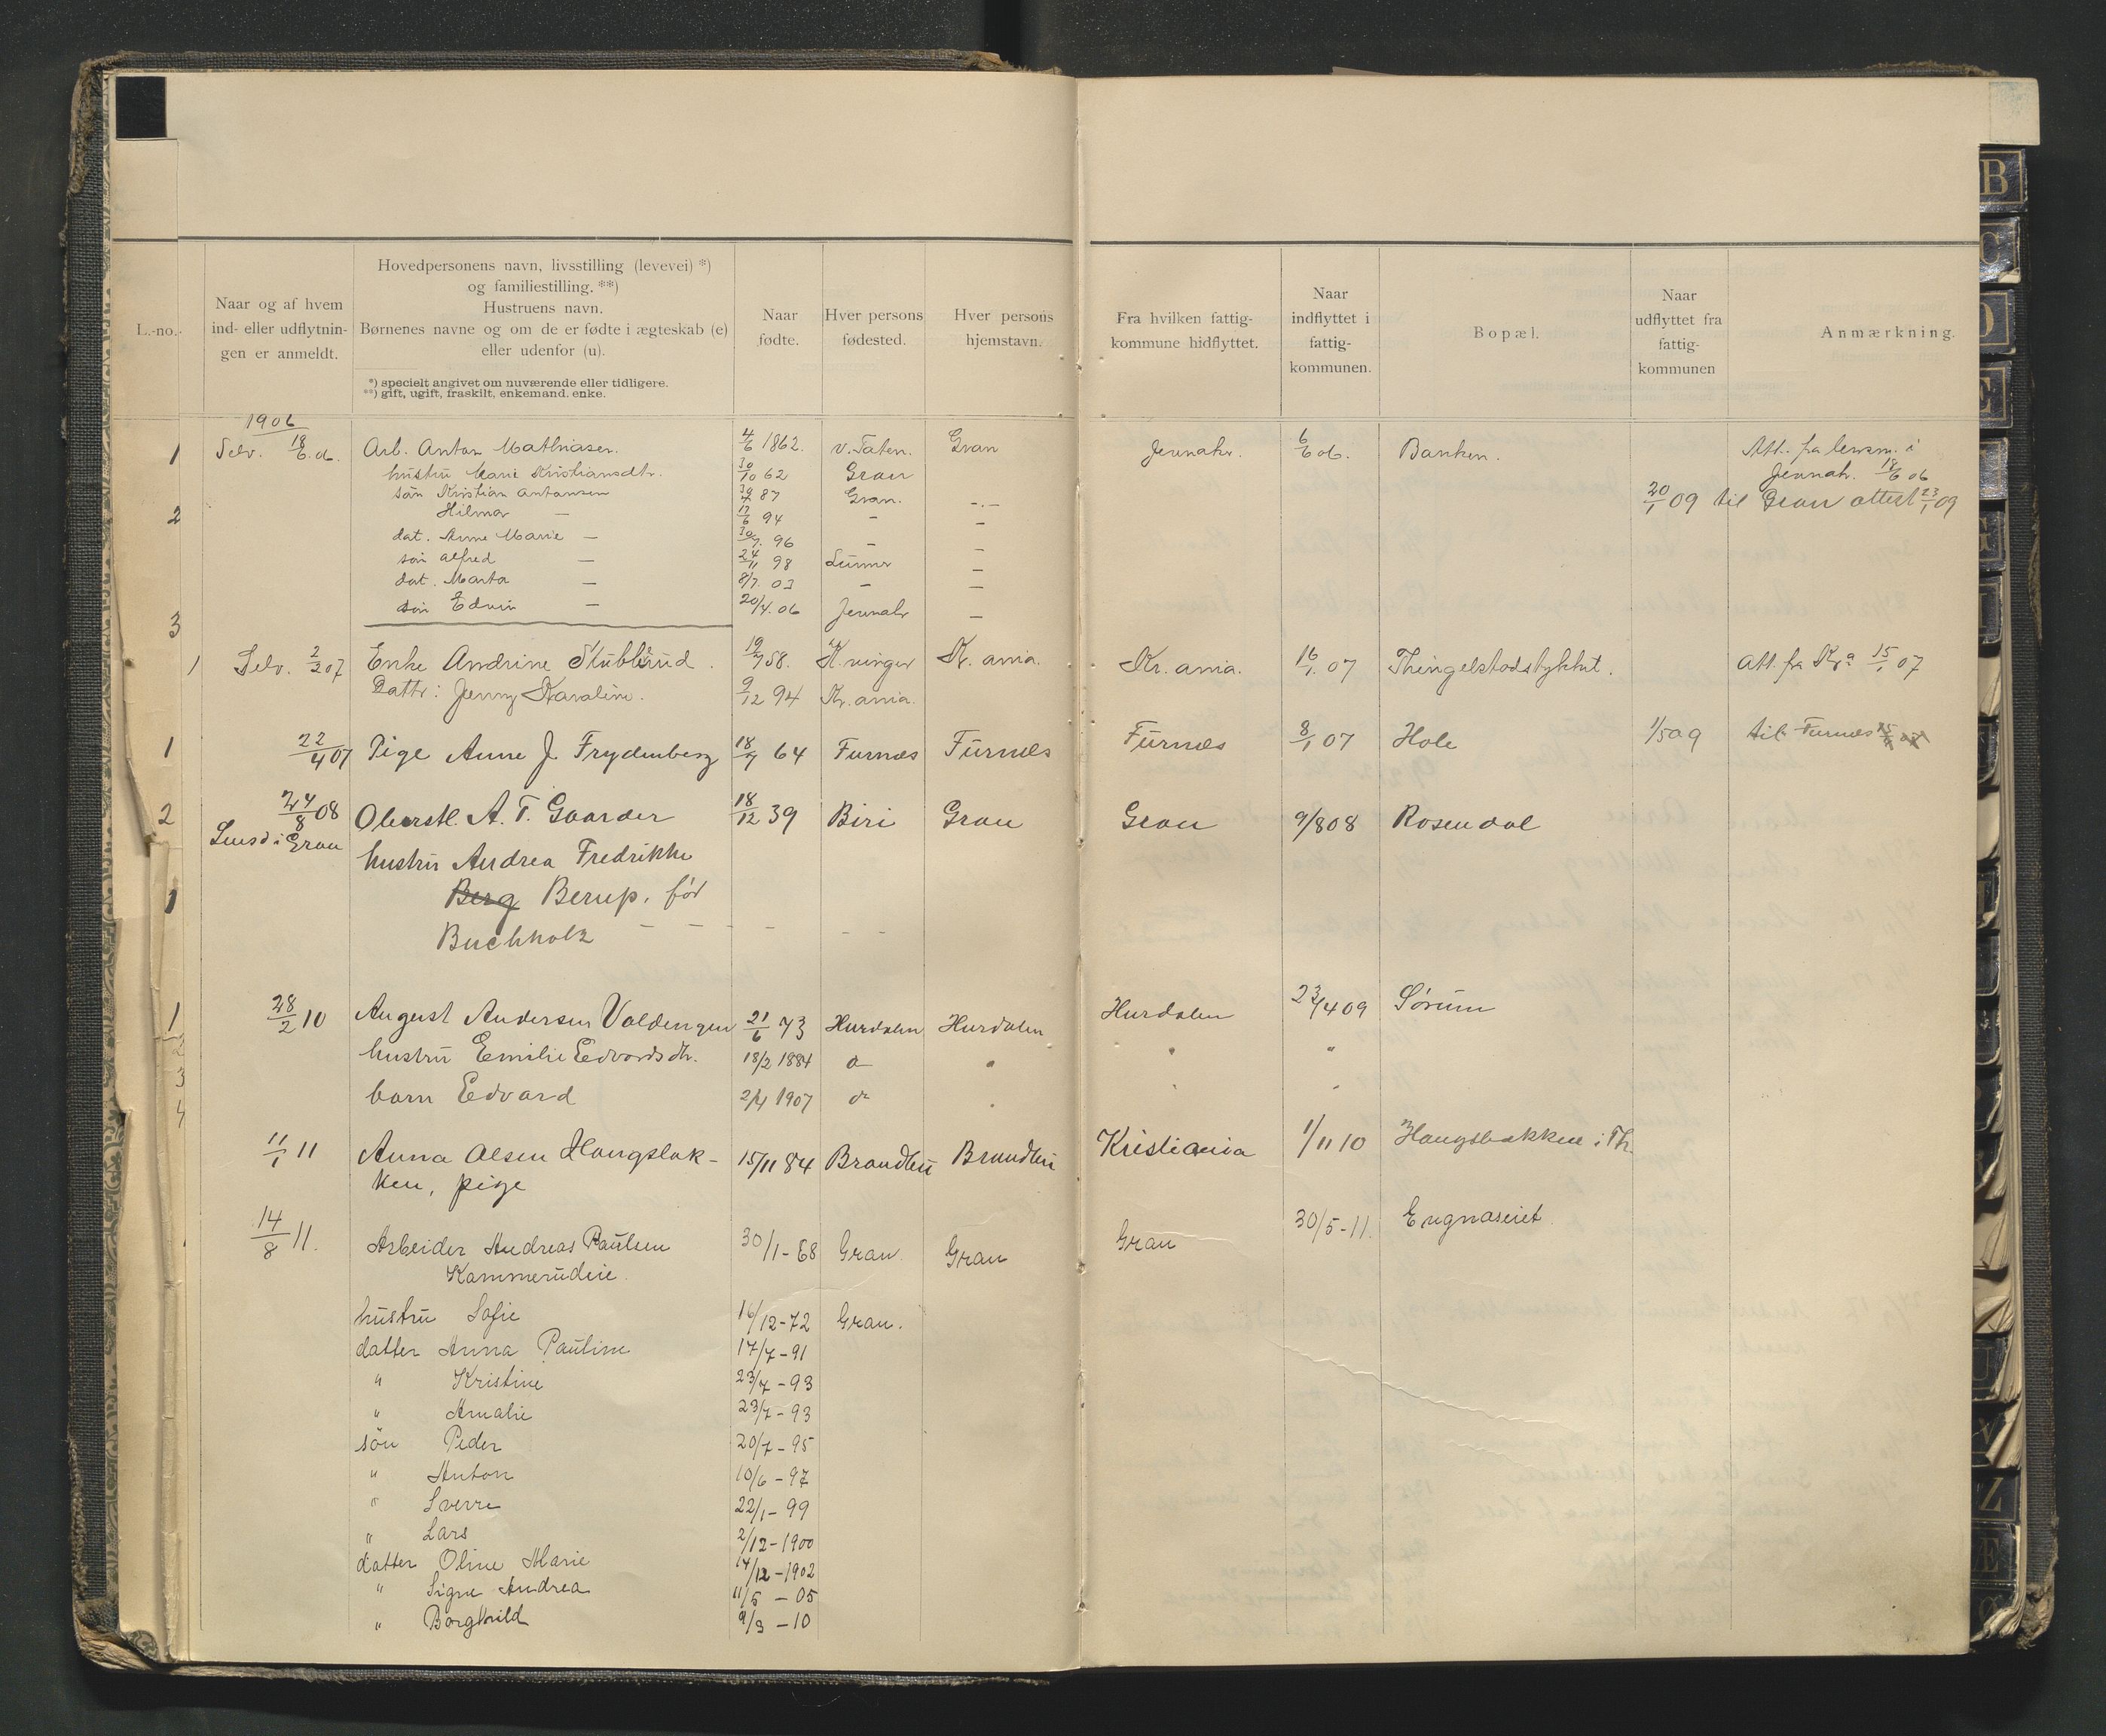 L.-no.
Naar og af hvem
ind- eller udflytnin-
gen er anmeldt.
Hovedpersonens navn, livsstilling (levevei) *)
og familiestilling. **)
Hustruens navn.
Børnenes navne og om de er fødte i ægteskab (e)
eller udenfor (u).
*) specielt angivet om nuværende eller tidligere.
**) gift, ugift, fraskilt, enkemand. enke.
Naar
fødte.
Hver persons
fødested.
Hver persons
hjemstavn.
Fra hvilken fattig-
kommune hidflyttet.
Naar
indflyttet i
fattig-
kommunen.
Bopæl.
Naar
udflyttet fra
fattig-
kommunen
Anmærkning.
1906
1 Selv. 18/6.06. Arb. Anton Mathiasen. 4/6 1862. v. Toten. Gran Jevnakr. 6/6 06. Banken. Att. fra lensm. i
Jevnakr. 18/6 06
hustru Marie Kristiansdtr. 30/10 62 Gran
søn Kristian Antonsen 87 Gran. -.- 20/1 09 til Gran attest 23/1 09
2 Hilmar — 17/6 94 - -
dat. Anne Marie — 96 - -
søn Alfred — 24/11 98 Lunner -
dat. Marta — 8/7. 03 - -
3 søn Edvin — 20/4. 06 Jevnakr -
1 Selv. 2/2 07 Enke Andrine Stubberud. 58. K.vinger Kr. ania. Kr. ania. 16/1. 07 Thingelstadstykket. Att. fra Kr.a 15/1 07
Dattr: Jenny Karoline. 9/12 94 Kr. ania.
1 22/4 07 Pige Anne J. Frydenberg 18/7 64 Furnes Furnes Furnes 8/1 07 Hole 1/5 09 til Furnes
2 24/8 08 Oberstl. A. T. Gaarder 18/12 39 Biri Gran Gran 9/8 08 Rosendal
Lensd i Gran
hustru Andrea Fredrikke
1 Berg Berup, før
Buchholz - - - - -
1 28/2 10 August Andersen Valdengen 21/6 73 Hurdalen Hurdalen Hurdalen 23/4 09 Sørum
2 hustru Emilie Edvardsdtr. 18/2 1884 do " " "
3 barn Edvard 2/4 1907 do " " "
4
11/1 11 Anna Olsen Hougsbak- 15/11 84 Brandbu Brandbu Kristiania 1/11 10 Hougsbakken i Th.
ken, pige
14/8 11. Arbeider Andreas Paulsen 30/1 - 68 Gran. Gran Gran 30/5 - 11. Engnaseiet
Kammerudeie.
hustru Sofie 16/12 - 72 Gran.
datter Anna Pauline 17/7 - 91
" Kristine 23/7 - 93
" Amalie 23/7 - 93
søn Peder 20/7 - 95
" Anton 10/6 - 97
" Sverre 22/1 - 99
" Lars 2/12 - 1900
datter Oline Marie 14/12 - 1902
" Signe Andrea 11/5 - 05
" Borghild 9/3 - 10
B
C
D
E
G
U
V
Z
Æ
Ø